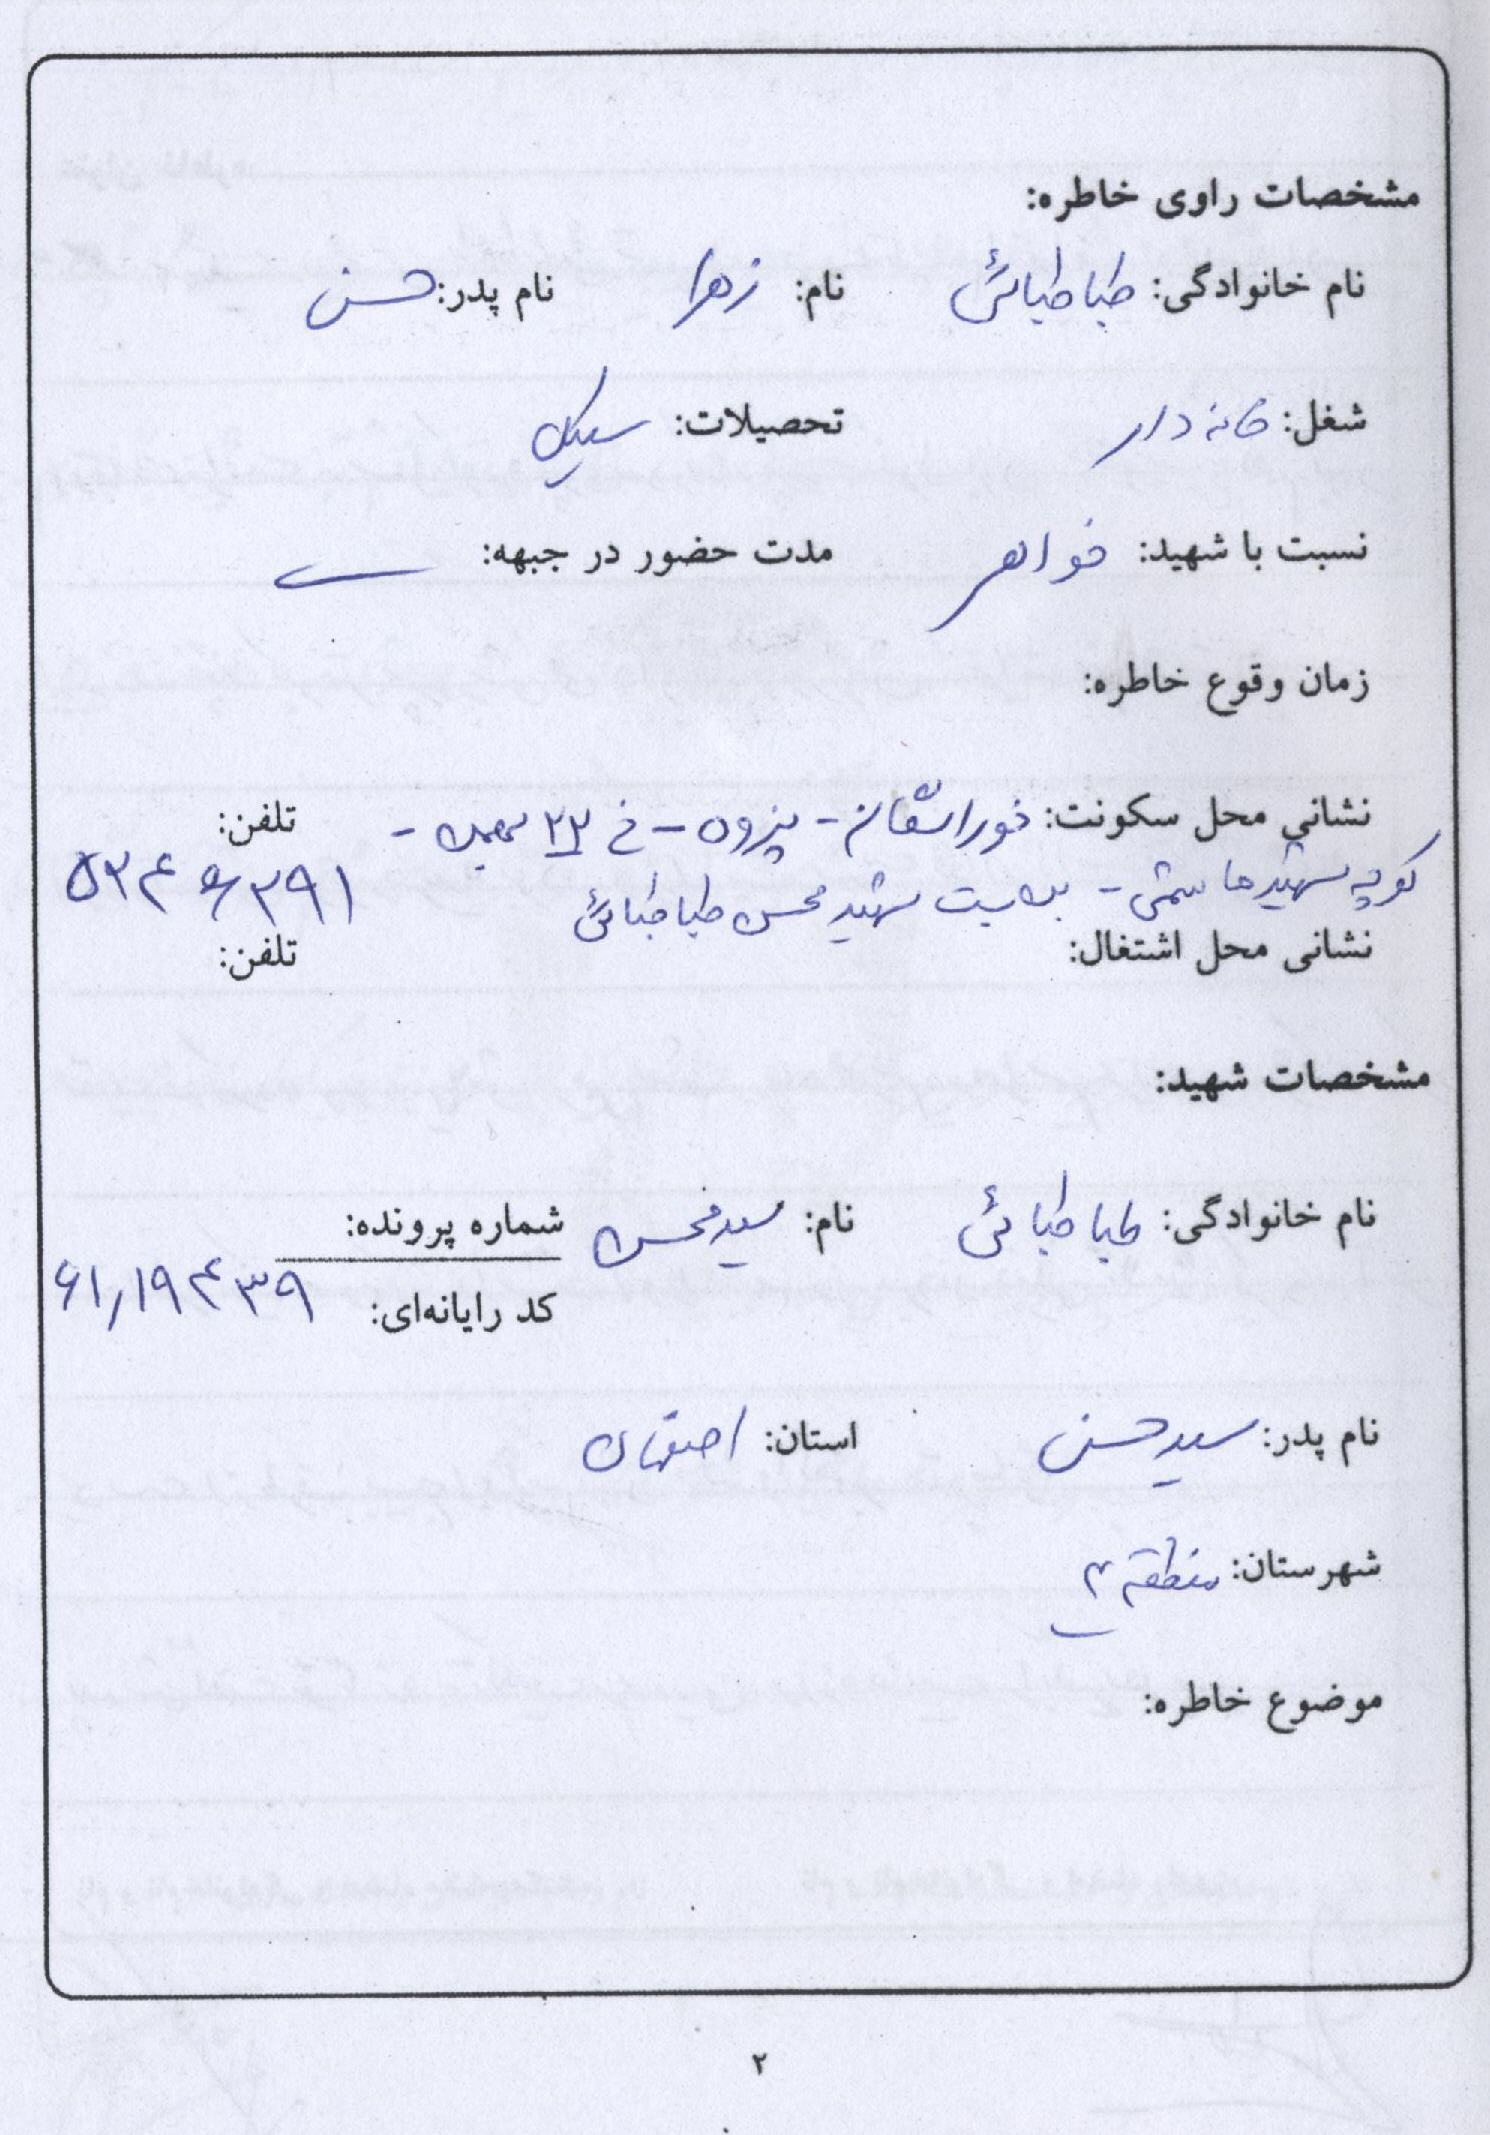 مشخصات راوی خاطره:
نام خانوادگی: طباطبائی نام: زهرا نام پدر: حسن
شغل: خانه دار تحصیلات: سیکل
نسبت با شهید: خواهر مدت حضور در جبهه: —
زمان وقوع خاطره:
نشانی محل سکونت: خوراسگان - پزوه - خ ۲۲ بهمن - تلفن:
کوچه شهید هاشمی - بن بست شهید محسن طباطبائی ۵۲۴۶۲۹۱
نشانی محل اشتغال: تلفن:
مشخصات شهید:
نام خانوادگی: طباطبائی نام: سید محسن شماره پرونده:
کد رایانه‌ای: ۶۱,۱۹۴۳۹
نام پدر: سید حسن استان: اصفهان
شهرستان: منطقه ۲
موضوع خاطره:
۲